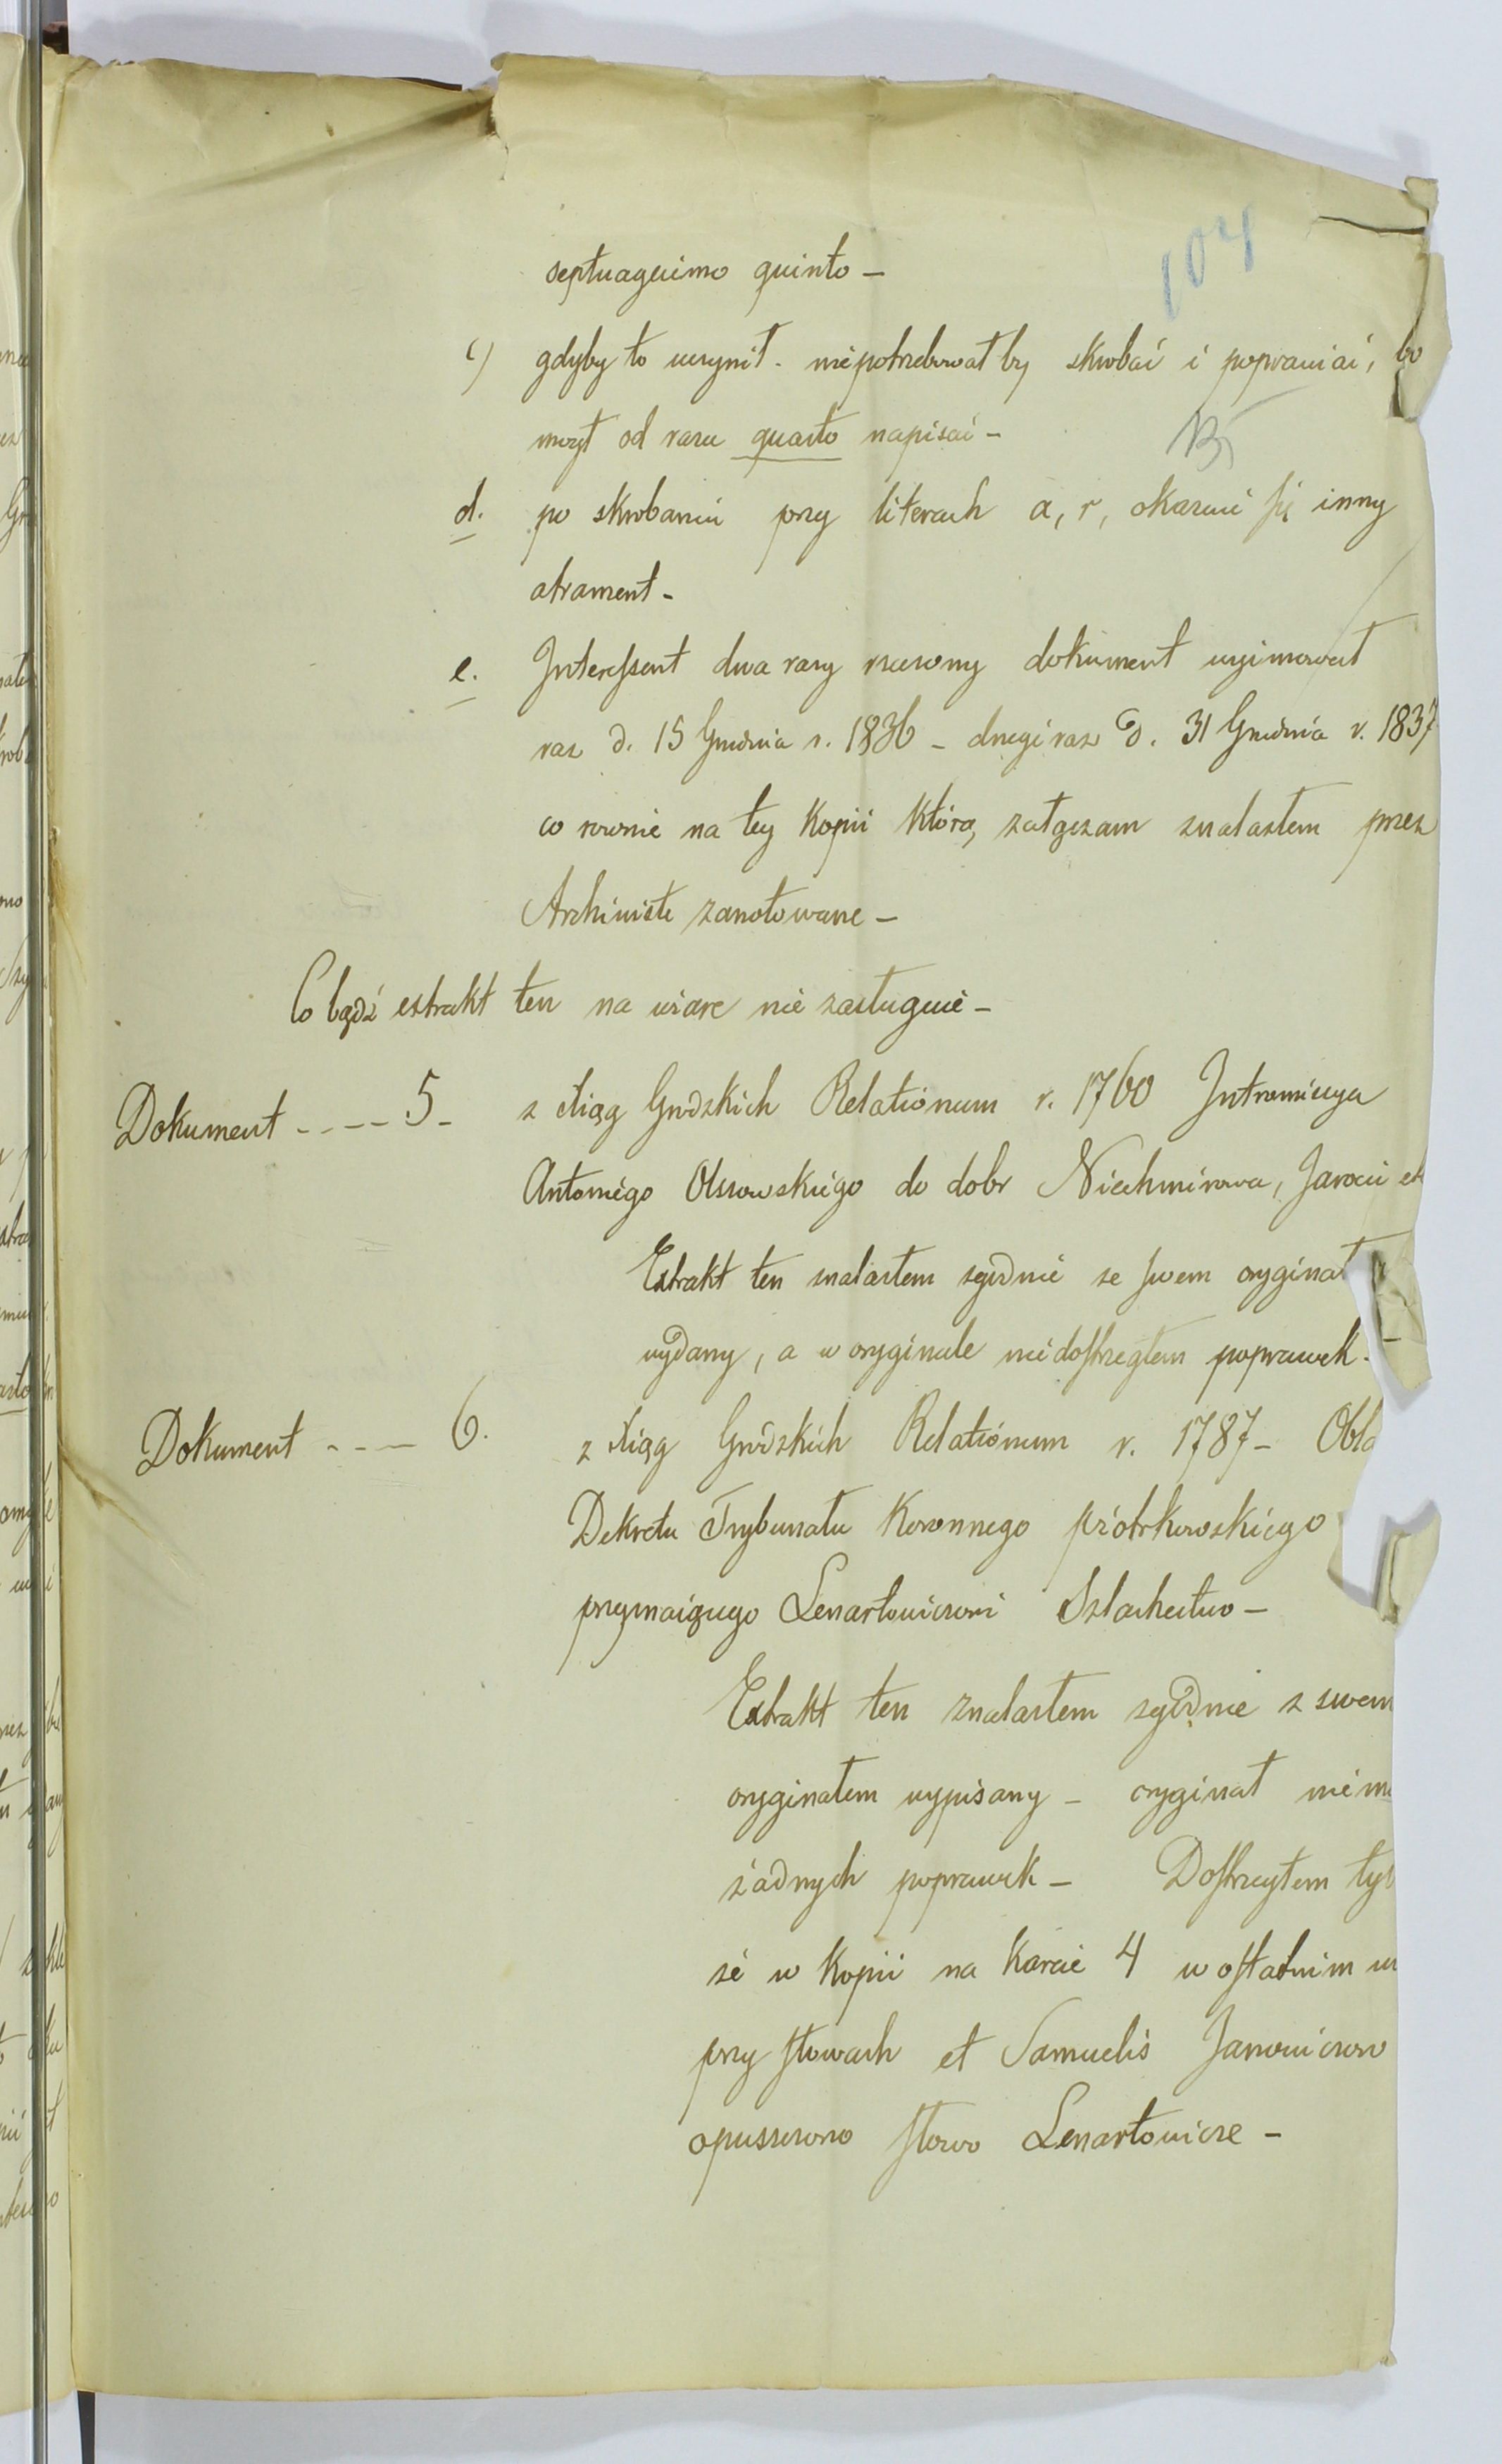 104
septuagesimo quinto -
c) gdyby to uczynił - niepotrzebował by skrobać i poprawiać, bo
mógł od razu quarto napisać -
d. po skrobaniu przy literach a, r, okazuie się inny
atrament -
e. Interessent dwa razy rzeczony dokument wyimował
raz d. 15 Grudnia r. 1836 - drugi raz d. 31 Grudnia r. 1837
co rownie na tey Kopii którą załączam znalazłem przez
Archiwistę zanotowane -
Co bądź extrakt ten na wiarę nie zasługuie -
Dokument - - - - 5 - z xiąg Grodzkich Relationum r. 1760 Intromissya
Antoniego Olszowskiego do dobr Niechmirowa, Jarocic et
Extrakt ten znalazłem zgodnie ze swem oryginał
wydany, a w oryginale nie dostrzegłem poprawek -
Dokument - - - - 6. z xiąg Grodzkich Relationum r. 1787 - Obla
Dekretu Trybunału Koronnego piotrkowskiego
przyznaiącego Lenartowiczowi Szlachectwo -
Extrakt ten znalazłem zgodnie z swem
oryginałem wypisany - oryginał nie ma
żadnych poprawek - Dostrzegłem tyl
że w Kopii na Karcie 4 w ostatnim w
przy słowach et Samuelis Janowiczow
opuszczono słowo Lenartowicze -